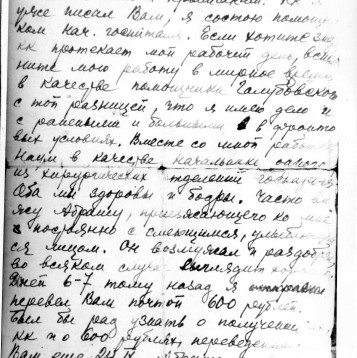 уже писал Вам, я состою помощни-
ком нач. госпиталя. Если хотите знать
как протекает мой рабочий день, вспом-
ните мою работу в мирное время
в качестве помощника Голубовского
с той разницей, что я имею дело
с ранеными и больными в фронто
вых условиях. Вместе со мной работает
в качестве начальника одного
из хирургических отделений госпиталя
Оба мы здоровы и бодры. Часто
вижу Абрашу, приезжающего ко мне
постоянно с смеющимся, улыбающим
ся лицом. Он возмужал и раздобрел
во всяком случае выглядит
Дней 6-7 тому назад я
перевел Вам почтой 600 рублей.
Был бы рад узнать о получении
как и о 600 рублях, переведенных
Вам еще